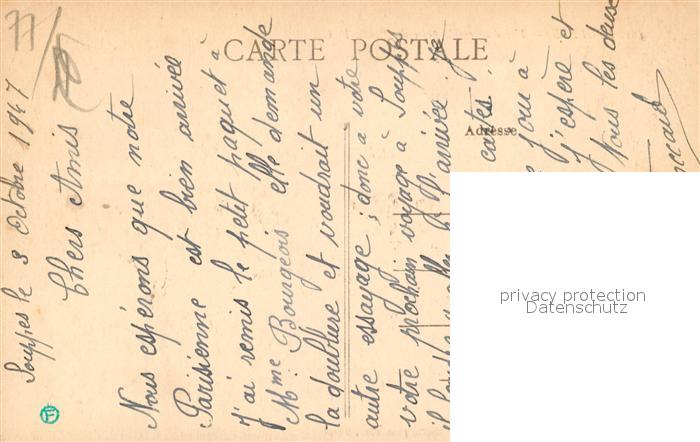 77
CARTE POSTALE
Adresse
Souppes le 3 Octobre 1947
Chers Amis
Nous espérons que notre
Parisienne est bien arrivée
J'ai remis le petit paquet à
Mme Bourgeois elle demande
la doublure et voudrait un
autre essayage ; donc à votre
votre prochain voyage à Souppes
il faudra arrivée je
cartes
joui à
j'espère et
Vous les deux
privacy protection
Datenschutz